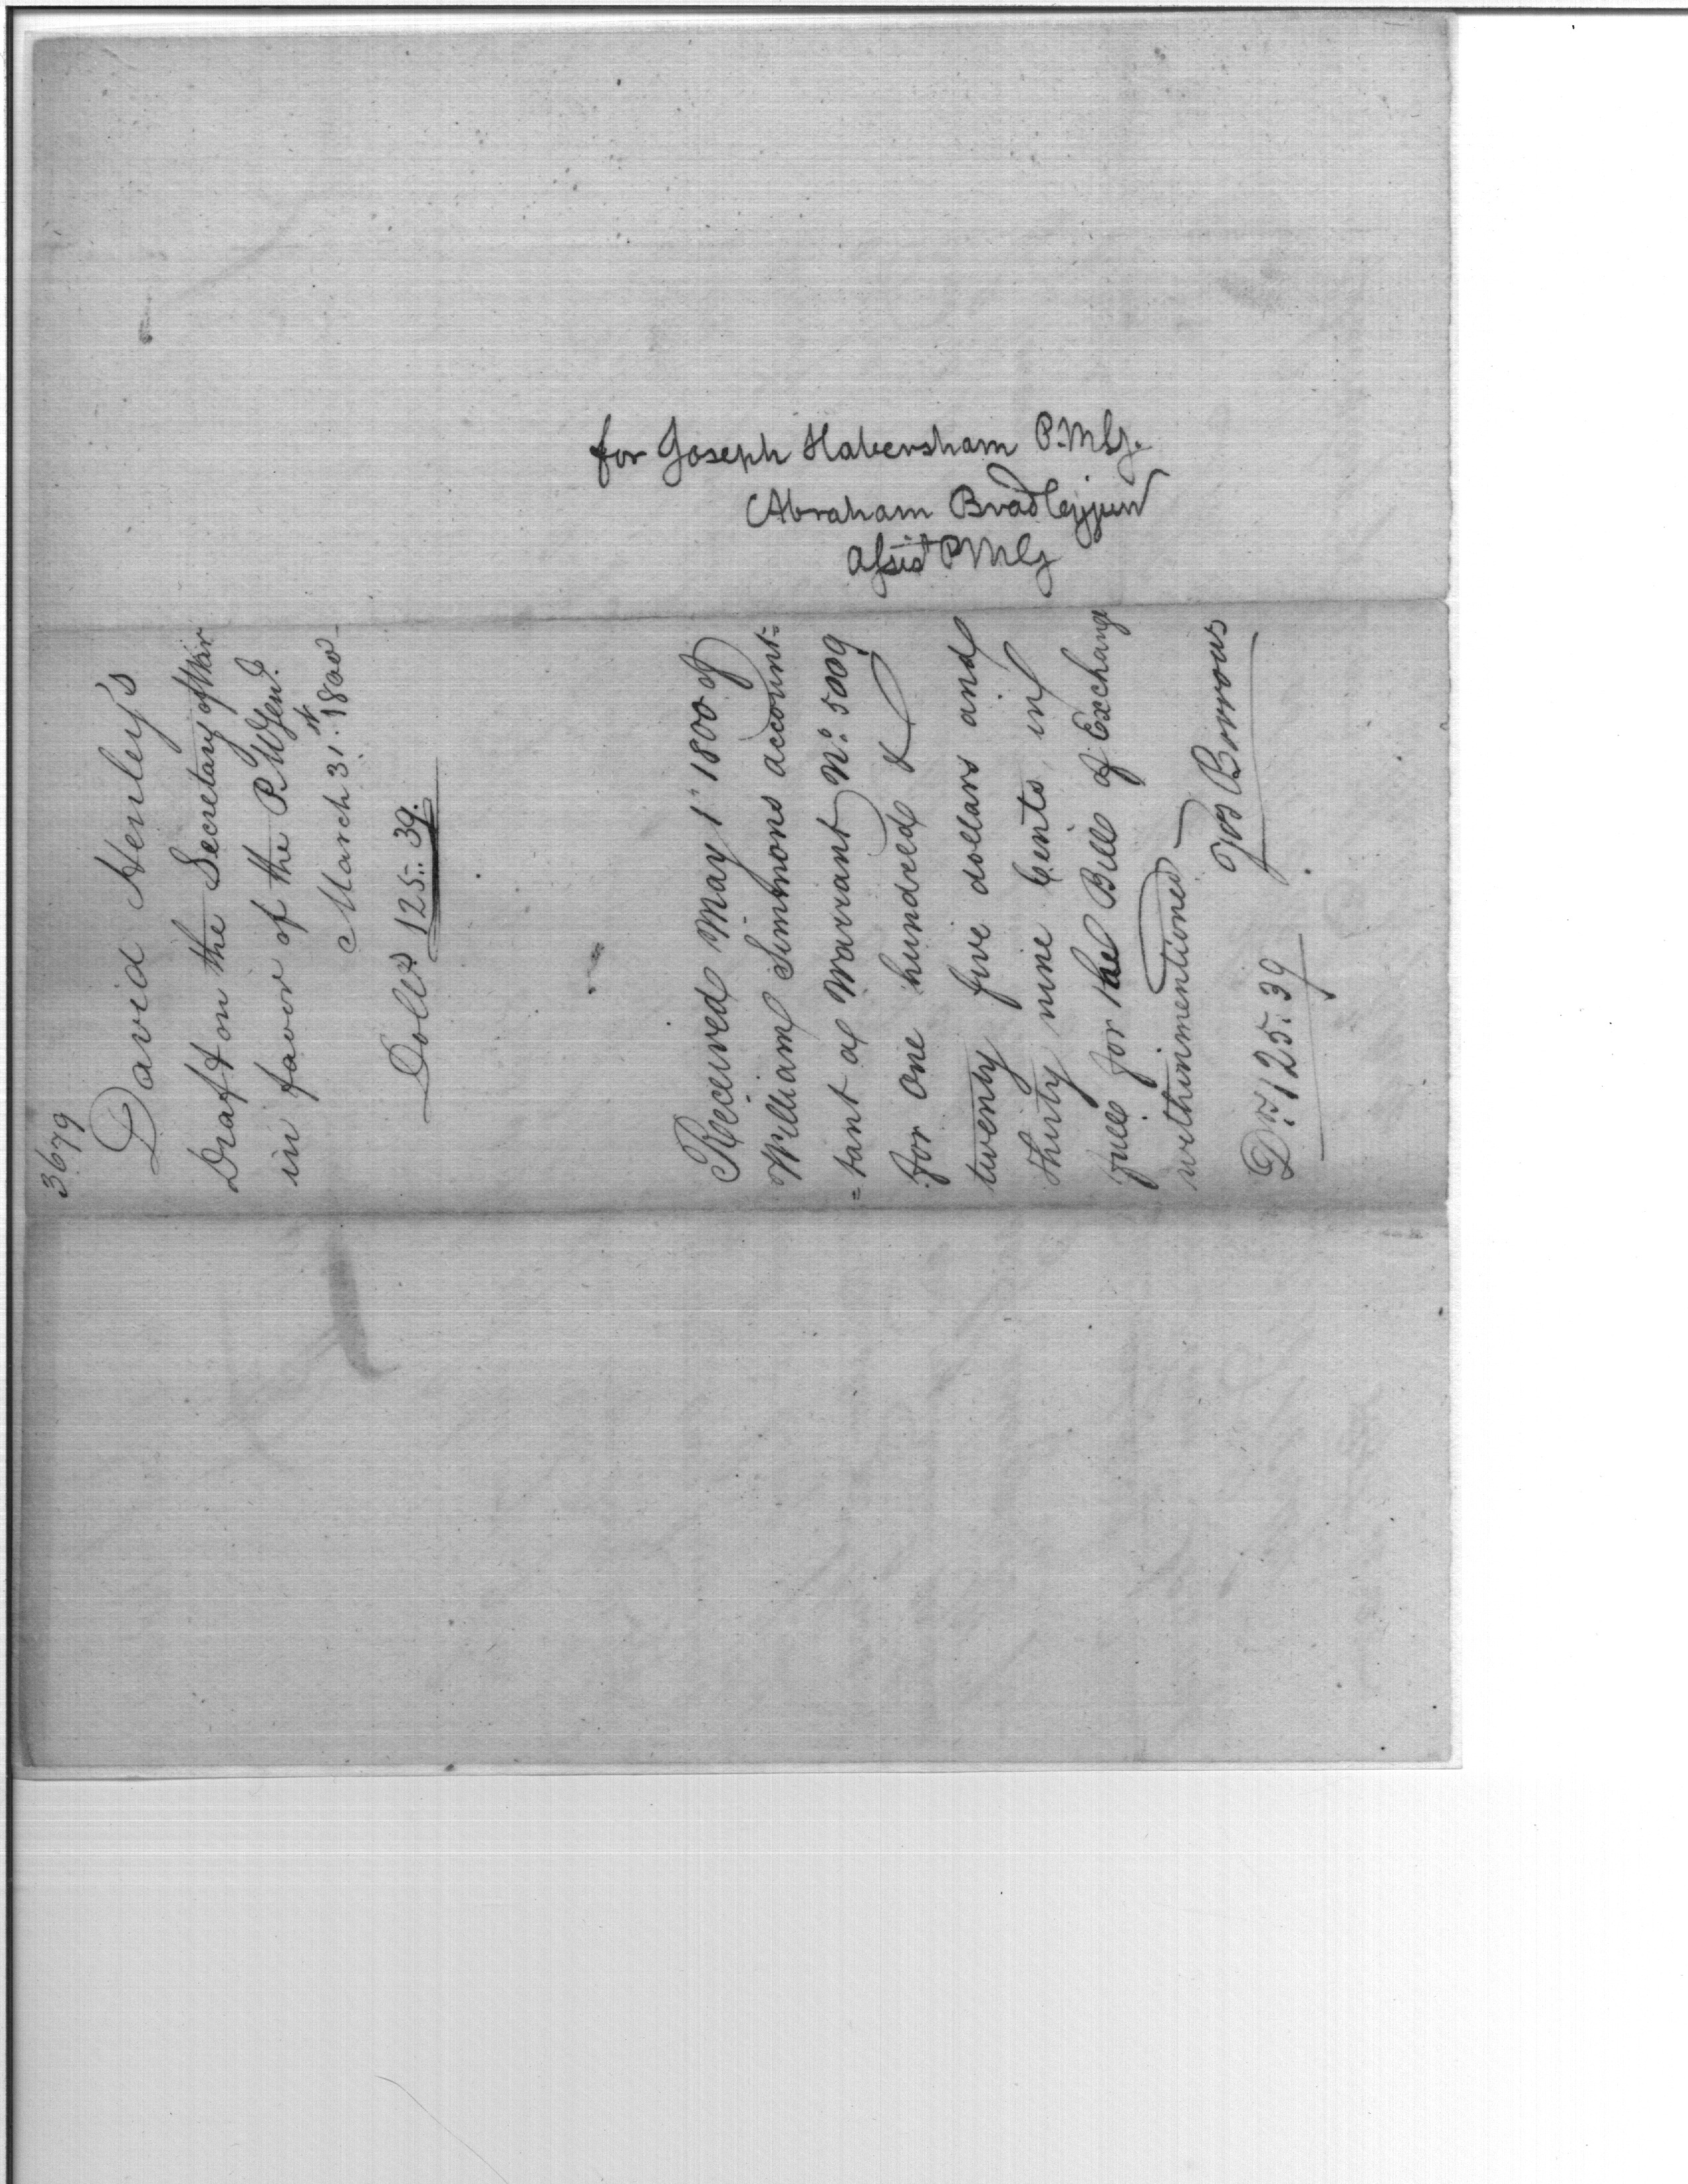 for Joseph Habersham P.M.G.
Abraham Bradley jun
Assist P M G
3679
David Henley's
Draft on the Secretary of War
in favor of the P. M Genl.
March 31st. 1800
Dolls. 125.. 39.
Received May 1st 1800 of
William Simmons account=
=tant a Warrant No. 5009
for One hundred &
twenty five dollars and
thirty nine Cents in
full for the Bill of Exchange
withinmentioned
Jos Borrows
Drs. 125. 39